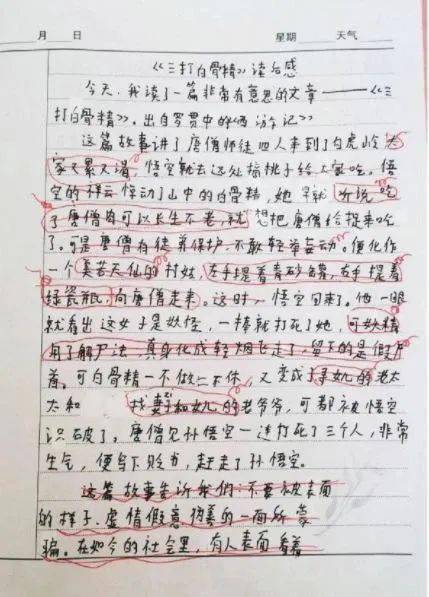 月 日 星期 天气
《三打白骨精》读后感
今天，我读了一篇非常有意思的文章——《三
打白骨精》，出自罗贯中的《西游记》
这篇故事讲了唐僧师徒四人来到了白虎岭大
家又累又渴，悟空就去远处摘桃子给大家吃。悟
空的祥云惊动了山中的白骨精，她早就听说吃
了唐僧肉可以长生不老，就想把唐僧给捉来吃
了。可是唐僧有徒弟保护，不敢轻举妄动。便化作
一个美若天仙的村姑，左手提着青砂罐，右手提着
绿瓷瓶，向唐僧走来。这时，悟空回来了。他一眼
就看出这女子是妖怪，一棒就打死了她，可妖精
用了解尸法，真身化成轻烟飞走了，留下的是假尸
首。可白骨精一不做二不休，又变成了寻女儿的老太
太和找妻子和女儿的老爷爷，可都被悟空
识破了。唐僧见孙悟空一连打死了三个人，非常
生气，便写下贬书，赶走了孙悟空。
这篇故事告诉我们：不要被表面
的样子、虚情假意伪善的一面所蒙
骗。在如今的社会里，有人表面看着